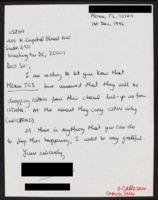 Miami, FL, 33129
1st Dec, 1996
C-SPAN
400 N-Capitol Street NW
Suite 650
Washington DC, 20001
Dear Sir,
I am writing to let you know that
Miami TCI have announced that they will be
dropping CSPAN from their channel line up as from
At the moment they carry CSPAN only
If there is anything that you can do
to stop this happening, I would be very grateful.
Yours sincerely,